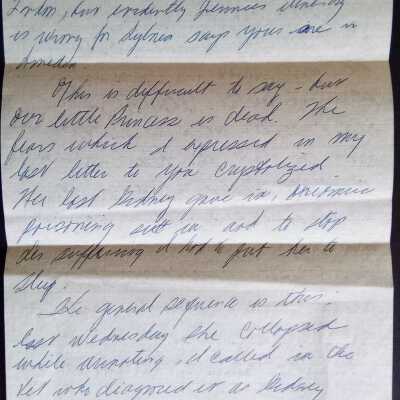 London, but evidently Jennies itinerary
is wrong for Sylvia says you are in
Sweden.
This is difficult to say - but
our little Princess is dead. The
fears which I expressed in my
last letter to you crystolyzed.
Her last kidney gave in, uremic
poisoning sett in, and to stop
her suffering I had to put her to
sleep.
The general sequence is this:
Last Wednesday she collapsed
while urinating. I called in the
Vet who diagnosed it as kidney